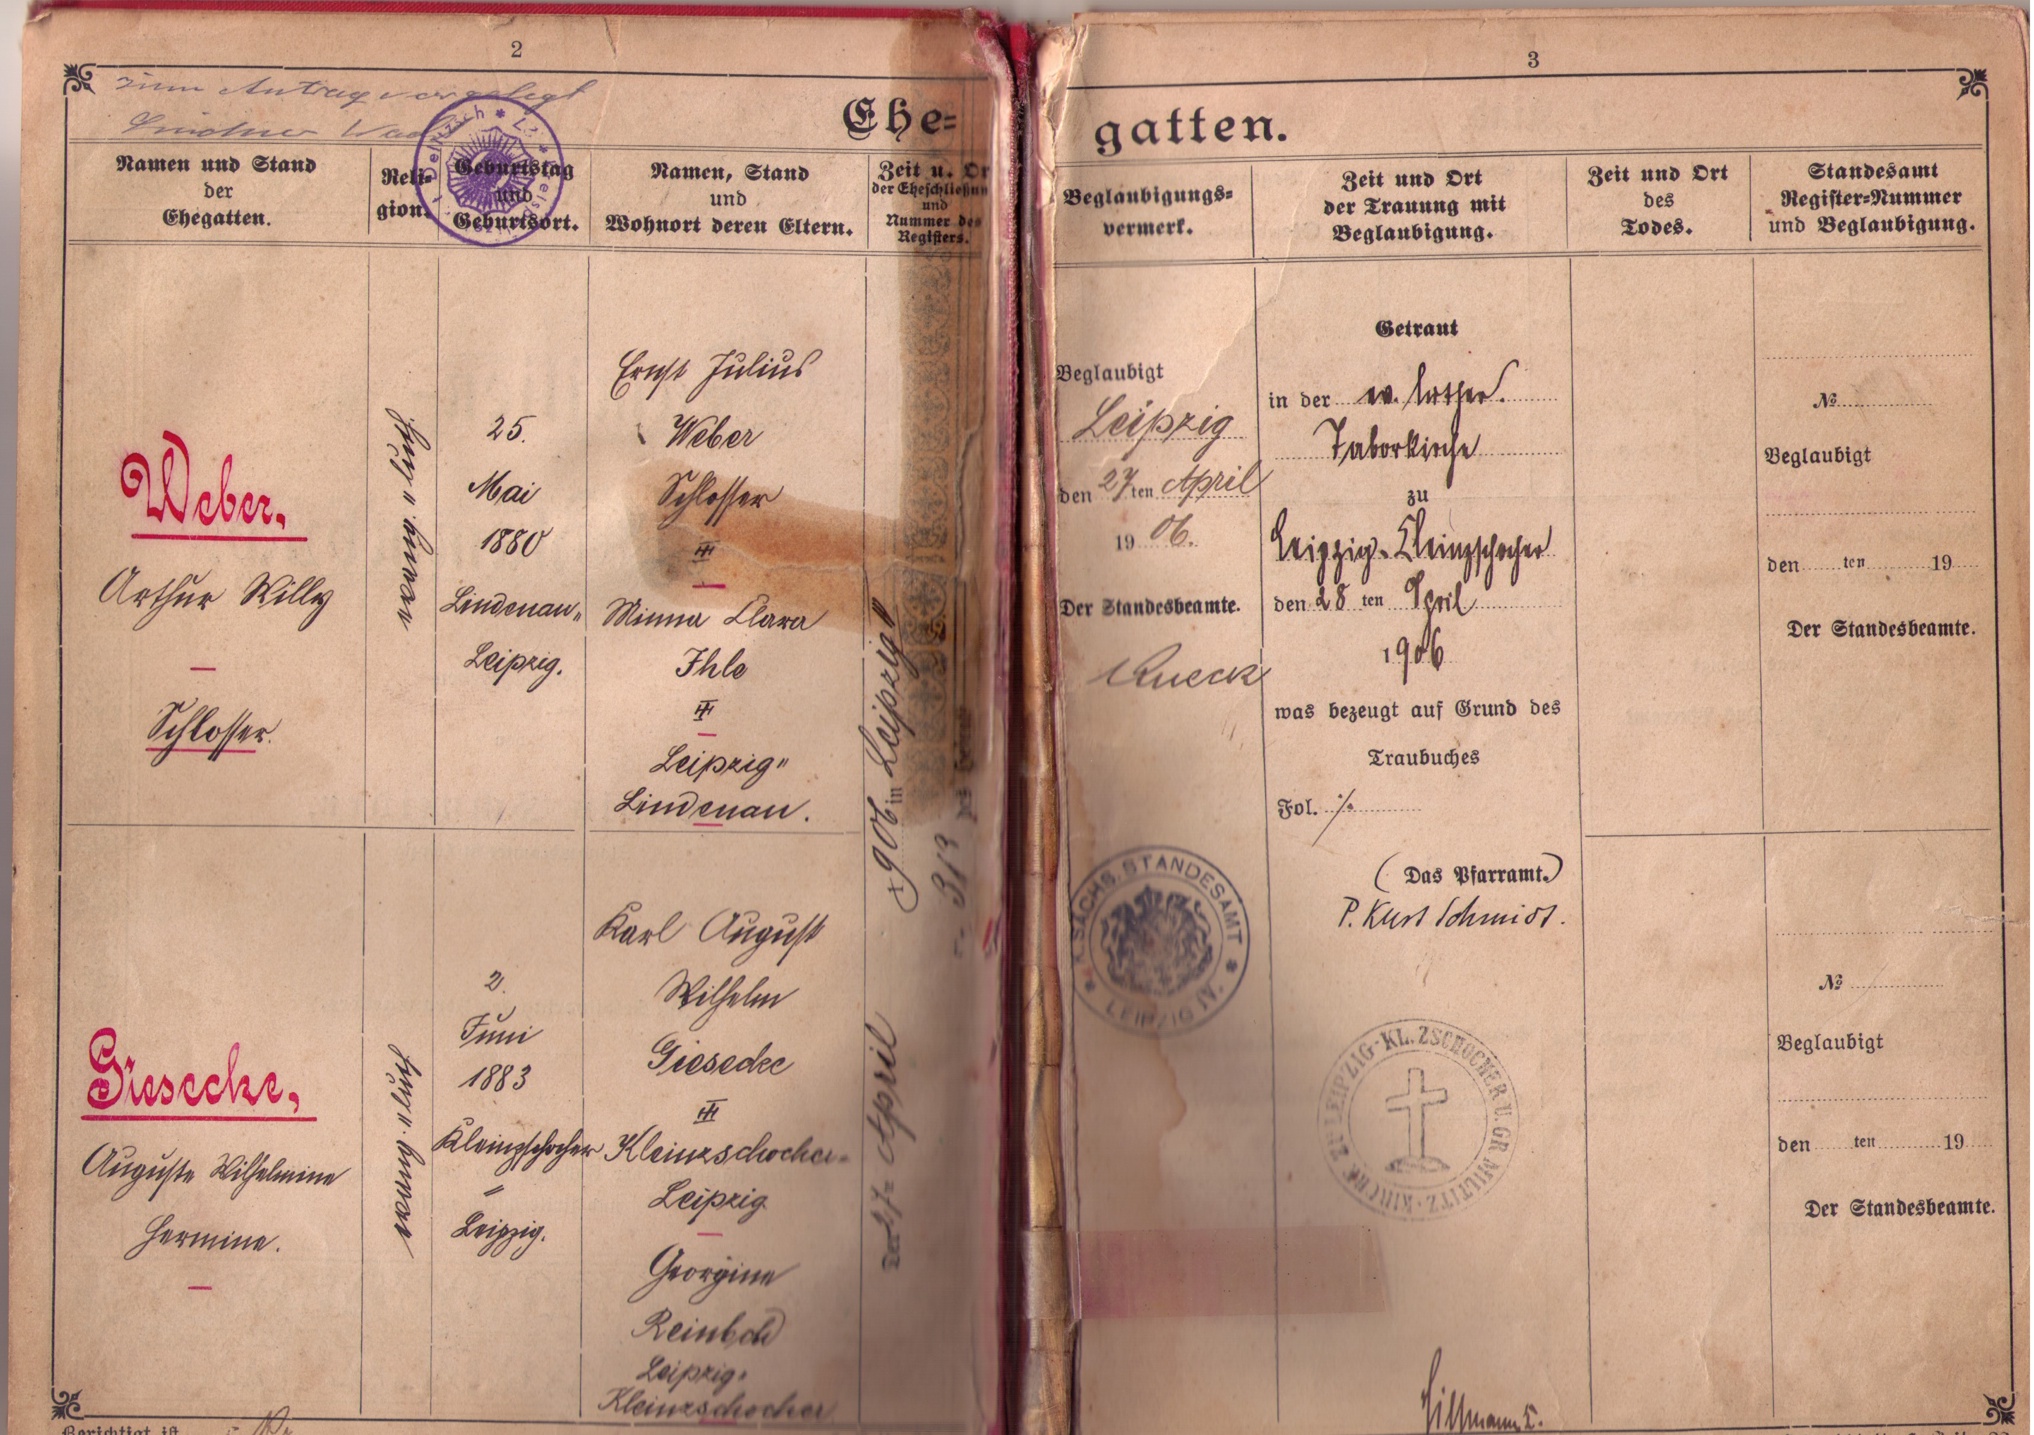 2
zum Antrag vorgelegt
Ehe=
Namen und Stand
der
Ehegatten.
Reli=
gion.
Geburtstag
und
Geburtsort.
Namen, Stand
und
Wohnort deren Eltern.
Zeit u. Or
der Eheschließun
und
Nummer des
Registers.
Weber,
Arthur Willy
Schlosser.
evang.=luth.
25.
Mai
1880
Lindenau=
Leipzig.
Ernst Julius
Weber
Schlosser
Minna Clara
Ihle
Leipzig=
Lindenau.
Giesecke,
Auguste Wilhelmine
Hermine.
evang.=luth.
2.
Juni
1883
Kleinzschocher
=
Leipzig.
Karl August
Wilhelm
Giesecke
Kleinzschocher=
Leipzig
Georgine
Leipzig=
Kleinzschocher
den 27= April 1906 in Leipzig
313
Berichtigt ist
3
gatten.
Beglaubigungs=
vermerk.
Zeit und Ort
der Trauung mit
Beglaubigung.
Zeit und Ort
des
Todes.
Standesamt
Register=Nummer
und Beglaubigung.
Beglaubigt
Leipzig
den 27ten April
1906.
Der Standesbeamte.
K. SÄCHS. STANDESAMT
LEIPZIG IV.
Getraut
in der ev. luther.
Taborkirche
zu
Leipzig-Kleinzschocher
den 28ten April
1906
was bezeugt auf Grund des
Traubuches
Fol. ·/.
(Das Pfarramt.)
P. Kurt Schmidt.
KIRCHE ZU LEIPZIG-KL. ZSCHOCHER U. GR. MILTITZ
№
Beglaubigt
den ten 19
Der Standesbeamte.
№
Beglaubigt
den ten 19
Der Standesbeamte.